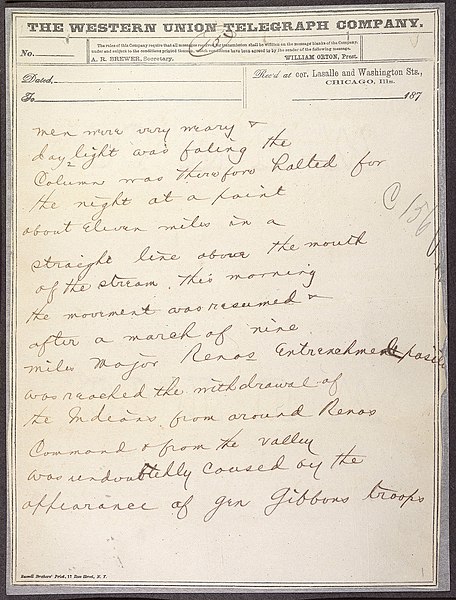 THE WESTERN UNION TELEGRAPH COMPANY.
The rules of this Company require that all messages received for transmission shall be written on the message blanks of the Company,
under and subject to the conditions printed thereon, which conditions have been agreed to by the sender of the following message.
A. R. BREWER, Secretary. WILLIAM ORTON, Prest.
No.
Dated
Rec'd at cor. Lasalle and Washington Sts.,
CHICAGO, Ills.
To 187
men were very weary &
day light was fading the
Column was therefore halted for
the night at a point
about Eleven miles in a
straight line above the mouth
of the stream. This morning
the movement was resumed &
after a march of nine
miles Major Renos Entrenched
was reached the withdrawal of
the Indians from around Renos
Command & from the valley
was undoubtedly caused by the
appearance of gen Gibbons troops
C 156
Russell Brothers' Print, 17 Rose Street, N. Y.